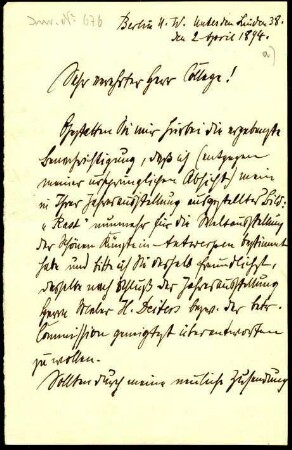 Inv. No 676
Berlin N. W. Unter den Linden 38.
den 2 April 1894.
a)
Sehr verehrter Herr College!
Gestatten Sie mir hierbei die ergebenste
Benachrichtigung, daß ich (entgegen
meiner ursprünglichen Absicht) mein
in Ihrer Jahresausstellung ausgestelltes Bild:
"Rast" nunmehr für die Weltausstellung
der schönen Künste in Antwerpen bestimmt
habe und bitte ich Sie deshalb freundlichst,
dasselbe nach Schluß der Jahresausstellung
Herrn Maler H. Deiters bezw. der betr.
Commission geneigtest überantworten
zu wollen.
Sollten durch meine neuliche Zusendung